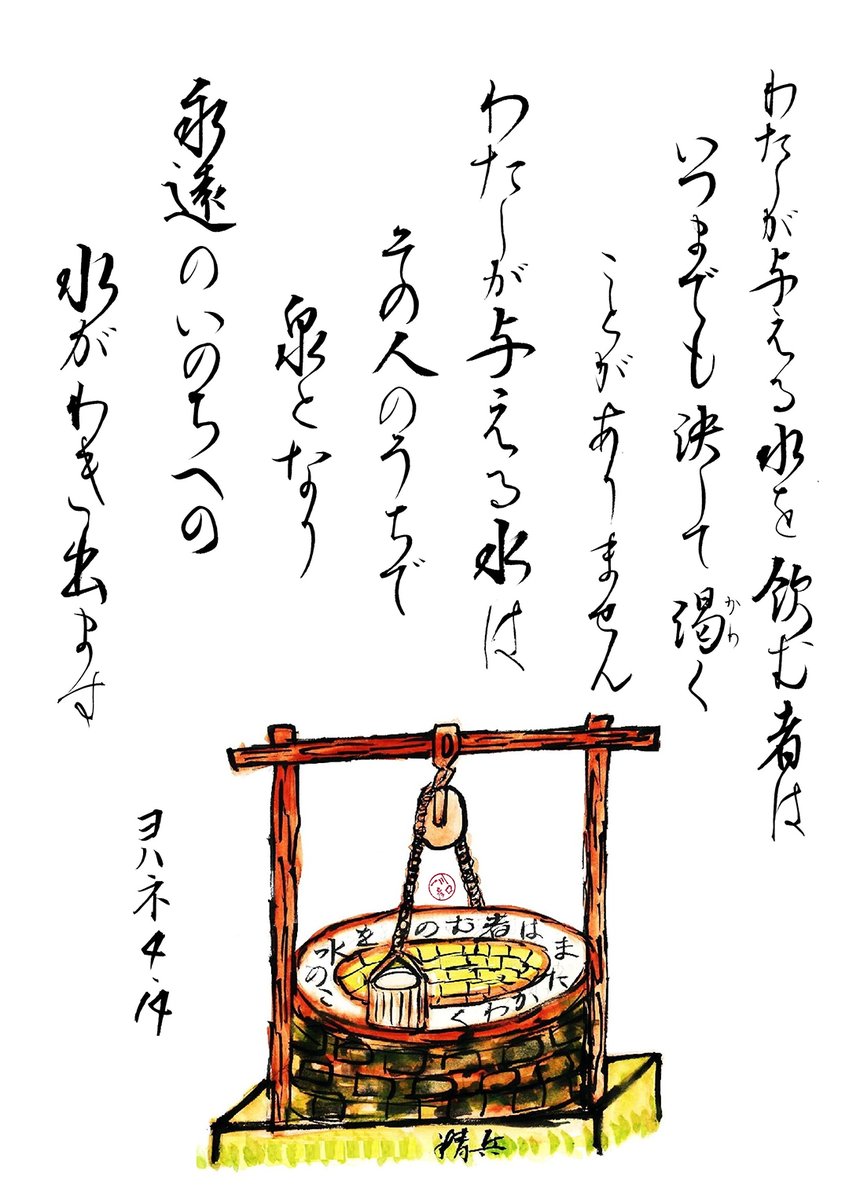 わたしが与える水を飲む者は
いつまでも決して渇く
かわ
ことがありません
わたしが与える水は
その人のうちで
泉となり
永遠のいのちへの
水がわき出ます
ヨハネ4.14
この水をのむ者はまたかわく
精兵